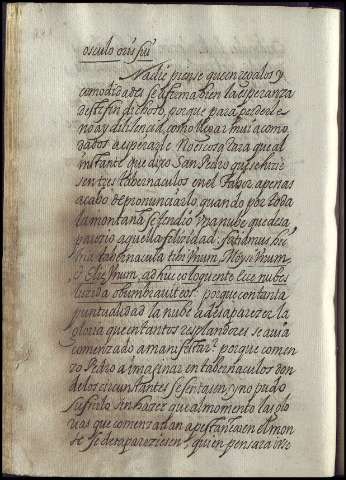 osculo oris sui
Nadie piense que en regalos y
comodidades se afirma bien la esperanza
deste fin dichoso, porque para perderle
no ay diligencia, como llegar mui acomo
dados a esperarle. Noticiosa cara que al
instante que dixo San Pedro que se hizie
sen tres tabernaculos en el Tabor apenas
acabo de pronunciarlo, quando por toda
la montaña se tendio vna nube que desa
parecio aquella felicidad. faciamus hic
tria tabernacula tibi Vnum, Moysi Vnum,
& Eliæ Vnum, adhuc eo loquente Ecce nubes
lucida obumbrauit eos. porque con tanta
puntualidad la nube a desaparezer la
gloria que en tantos resplandores se auia
comenzado a manifestar? porque comen
zo Pedro a imaginar en tabernaculos don
de los circunstantes se sentasen, y no pudo
sufrirlo sin hazer que al momento las glo
rias que comenzauan a pestañear en el mon
te se desapareziesen, quien pensara